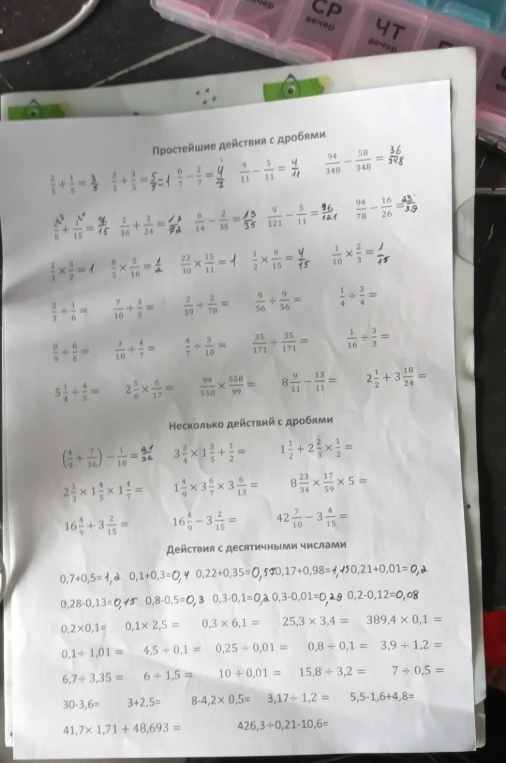 СР
вечер
ЧТ
вечер
Простейшие действия с дробями
2/5 + 1/5 = 3/5 2/5 + 3/5 = 5/5 = 1 6/7 − 2/7 = 4/7 9/11 − 5/11 = 4/11 94/348 − 58/348 = 36/348
2/5 + 1/15 = 7/15 2/36 + 3/24 = 13/72 6/14 − 2/35 = 13/35 9/121 − 5/11 = 36/121 94/78 − 16/26 = 23/39
2/3 × 3/2 = 1 8/5 × 5/16 = 1/2 22/30 × 15/11 = 1 1/2 × 8/15 = 4/15 1/10 × 2/3 = 1/15
2/3 ÷ 1/6 = 7/10 ÷ 3/5 = 2/39 ÷ 3/78 = 9/56 ÷ 9/56 = 1/4 ÷ 3/4 =
8/9 ÷ 6/6 = 3/10 ÷ 4/7 = 4/7 ÷ 3/10 = 35/171 ÷ 35/171 = 1/16 ÷ 3/3 =
5 1/4 ÷ 4/5 = 2 5/6 × 6/17 = 99/558 × 558/99 = 8 9/11 − 13/11 = 2 1/2 + 3 18/24 =
Несколько действий с дробями
(4/9 + 7/36) − 1/18 = 21/36 3 3/4 × 1 3/5 + 1/2 = 1 1/2 + 2 2/3 × 1/2 =
2 1/3 × 1 4/5 × 1 4/7 = 1 4/9 × 3 6/7 × 3 6/13 = 8 23/34 × 17/59 × 5 =
16 4/9 + 3 2/15 = 16 4/9 − 3 2/15 = 42 7/10 − 3 4/15 =
Действия с десятичными числами
0,7+0,5=1,2 0,1+0,3=0,4 0,22+0,35=0,57 0,17+0,98=1,15 0,21+0,01=0,2
0,28-0,13=0,15 0,8-0,5=0,3 0,3-0,1=0,2 0,3-0,01=0,29 0,2-0,12=0,08
0,2×0,1= 0,1× 2,5 = 0,3 × 6,1 = 25,3 × 3,4 = 389,4 × 0,1 =
0,1÷ 1,01 = 4,5 ÷ 0,1 = 0,25 ÷ 0,01 = 0,8 ÷ 0,1 = 3,9 ÷ 1,2 =
6,7÷ 3,35 = 6 ÷ 1,5 = 10 ÷ 0,01 = 15,8 ÷ 3,2 = 7 ÷ 0,5 =
30-3,6= 3+2,5= 8-4,2× 0,5= 3,17÷ 1,2 = 5,5-1,6+4,8=
41,7× 1,71 + 48,693 = 426,3÷0,21-10,6=